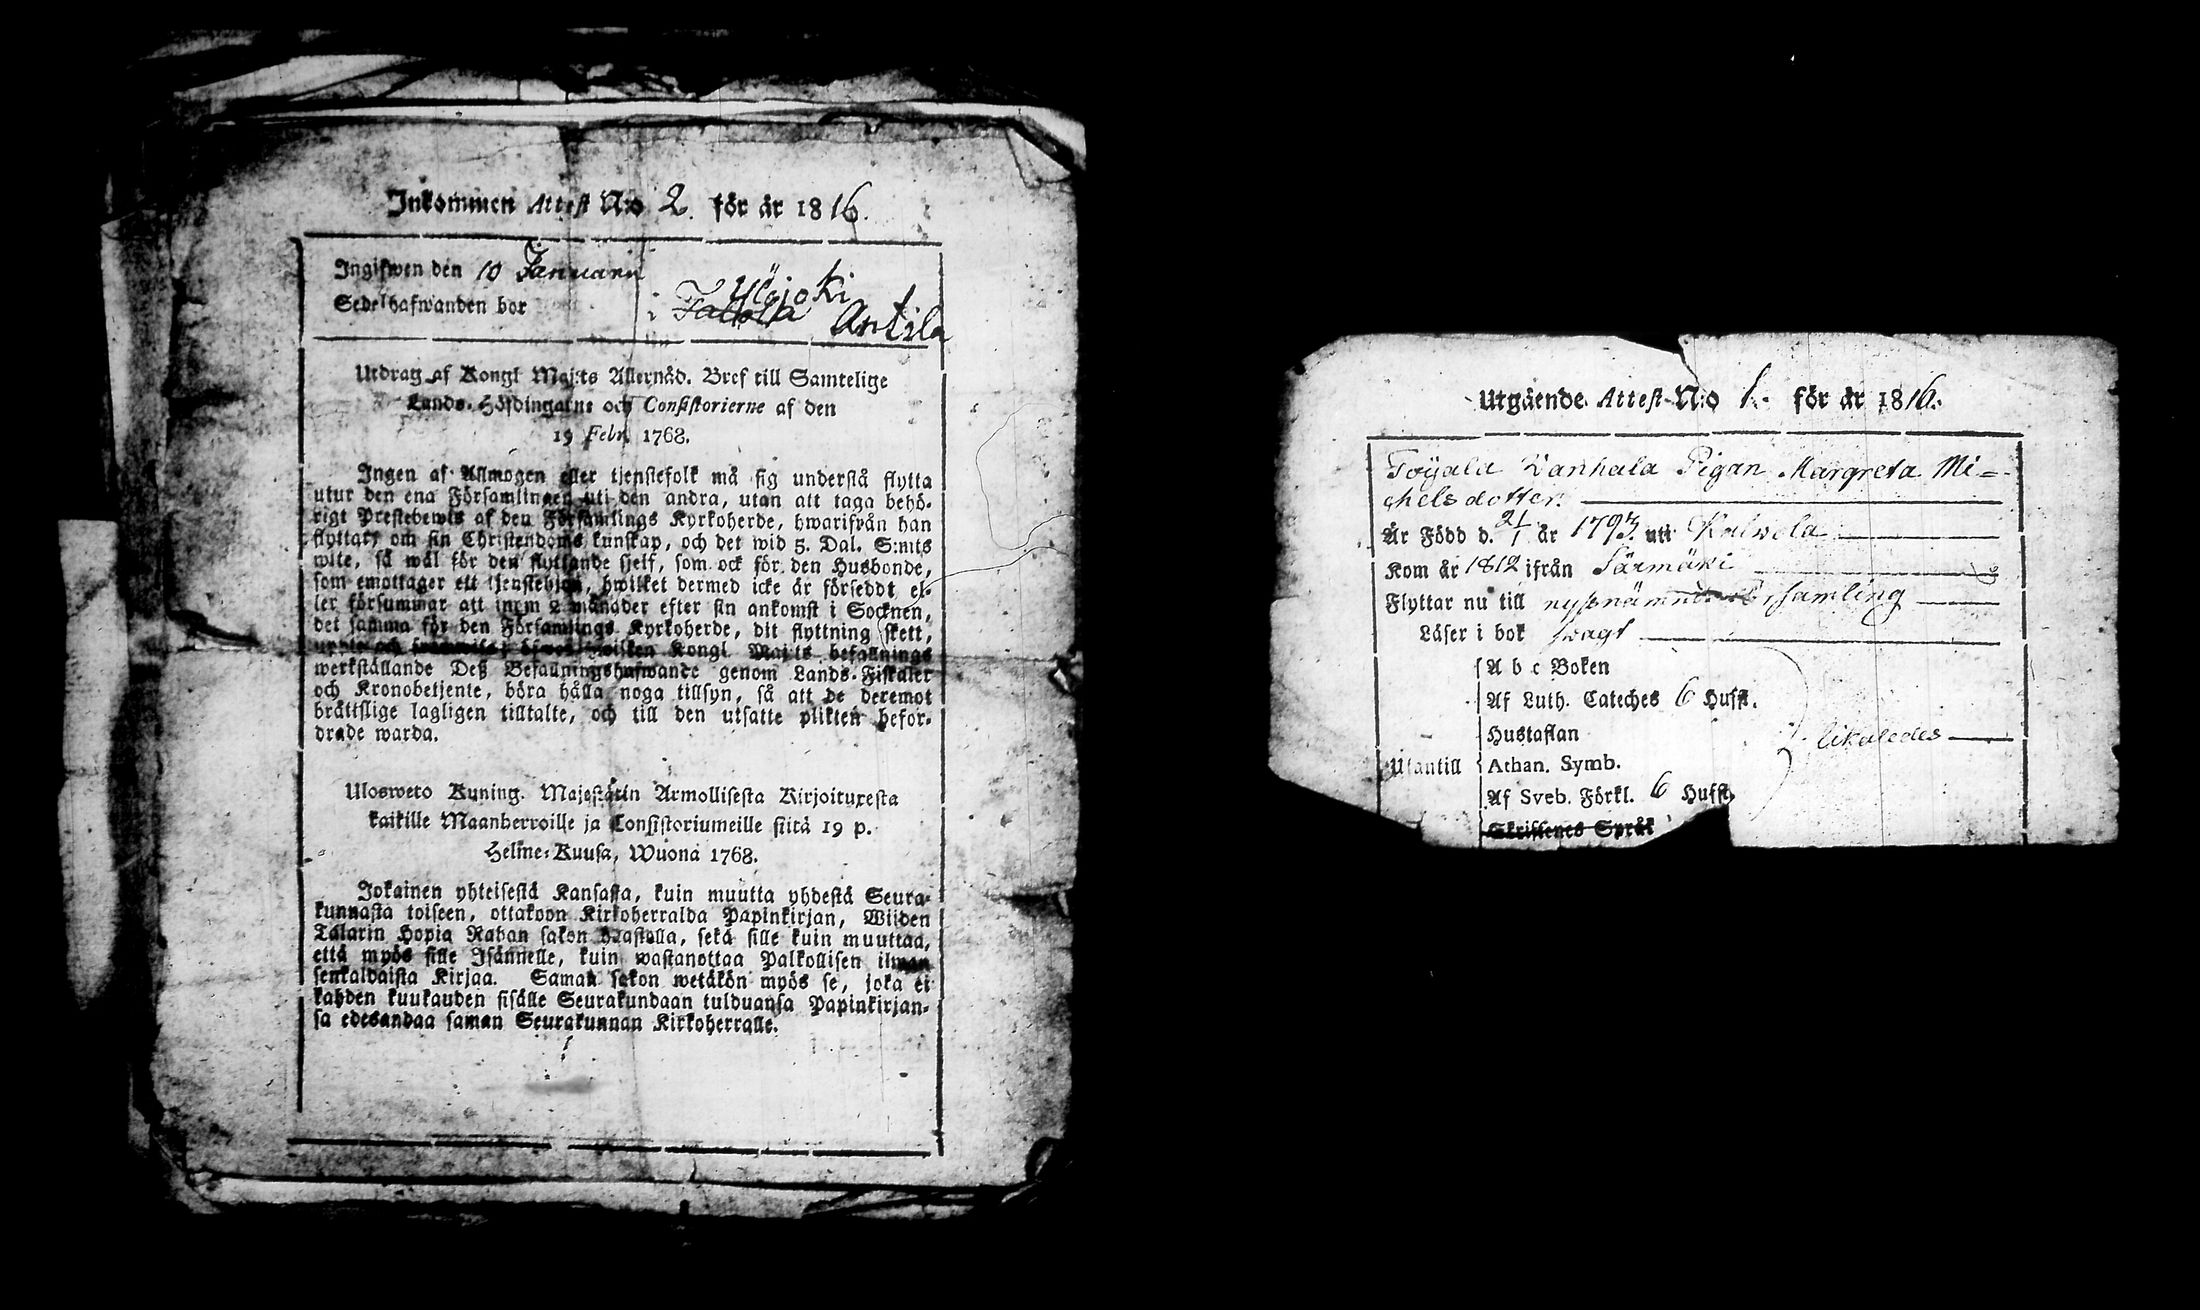 Inkommen Attest N:o 2. för år 1816.
Ingifwen den 10 Januarii
Sedelhafwanden bor i Ylöjoki Antila
Utdrag af Kongl Maj:ts Allernåd. Bref till Samtelige
Lands-Höfdingarne och Consistorierne af den
19 Febr. 1768.
Ingen af Allmogen eller tjenstefolk må sig understå flytta
utur den ena Församlingen uti den andra, utan att taga behö-
rigt Prestebewis af den Församlings Kyrkoherde, hwarifrån han
flyttar, om sin Christendoms kunskap, och det wid 5. Dal. S:mts
wite, så wäl för den flyttande sjelf, som ock för den Husbonde,
som emottager ett tjenstehjon, hwilket dermed icke är förseddt, el-
ler försummar att inom 2 månader efter sin ankomst i Socknen,
det samma för den Församlings Kyrkoherde, dit flyttning skett,
Kongl Maj:ts befallnings
werkställande Deß Befallningshafwande genom Lands-Fiskaler
och Kronobetjente, böra hålla noga tillsyn, så att de deremot
bråttslige lagligen tilltalte, och till den utsatte plikten befor-
drade warda.
Ulosweto Kuning. Majestätin Armollisesta Kirjoituxesta
kaikille Maanherroille ja Consistoriumeille siitä 19 p.
Helme-Kuusa, Wuona 1768.
Jokainen yhteisestä Kansasta, kuin muutta yhdestä Seura-
kunnasta toiseen, ottakoon Kirkoherralda Papinkirjan, Wiiden
Talarin Hopia Rahan sakon haastolla, sekä sille kuin muuttaa,
että myös sille Isännelle, kuin wastanottaa Palkollisen ilman
senkaldaista Kirjaa. Saman sakon wetäkön myös se, joka ei
kahden kuukauden sisälle Seurakundaan tulduansa Papinkirjan-
sa edesandaa saman Seurakunnan Kirkoherralle.
Utgående Attest N:o 1. för år 1816.
Toijala Wanhala Pigan Margreta Mi=
chelsdotter.
Är Född d. 21/1 år 1793. uti Kalwola
Kom år 1812 ifrån Särmäki
Flyttar nu till nyßnämnde Församling
Läser i bok swagt
A b c Boken
Af Luth. Cateches 6 Hufst.
Hustaflan
likaledes
Utantill Athan. Symb.
Af Sveb. Förkl. 6 Hufst.
Skriftenes Språk